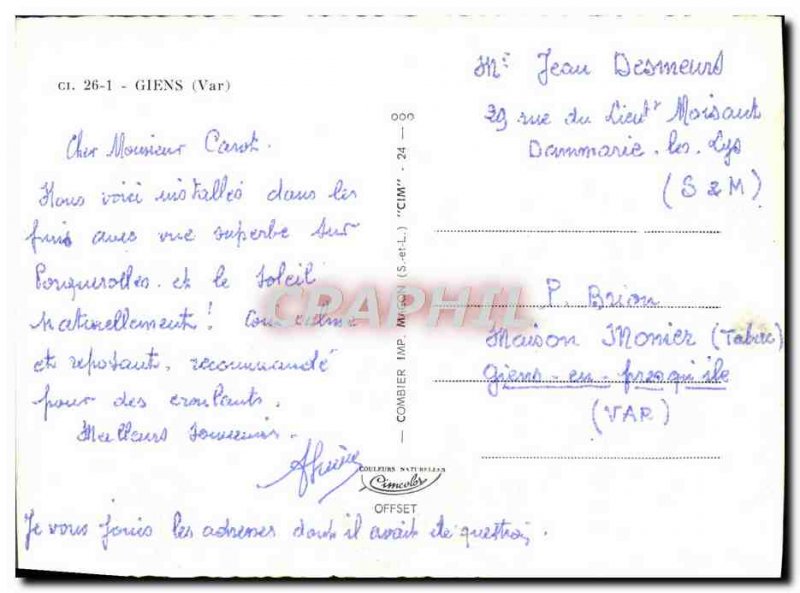 CI. 26-1 - GIENS (Var)
Cher Monsieur Carot.
Nous voici installés dans les
pins avec vue superbe sur
Porquerolles et le soleil
naturellement! Coin calme
et reposant, recommandé
pour des croulants.
Meilleurs souvenirs.
Je vous joins les adresses dont il avait été question.
COMBIER IMP. MACON (S.-et-L.) "CIM" - 24 — 000
COULEURS NATURELLES
Cimcolor
OFFSET
Mr Jean Desmeurs
29 rue du Lieutt Moisant
Dammarie. les. Lys
(S & M)
P. Brion
Maison Monier (Tabac)
Giens - en - presqu'ile
(VAR)
CRAPHIL